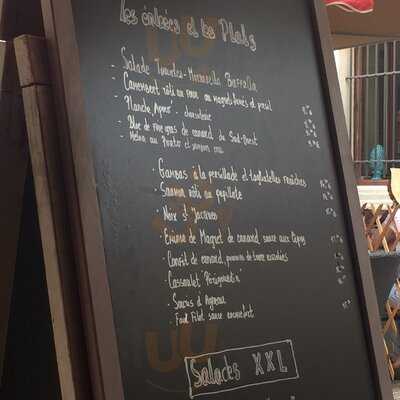 Les entrées et les Plats
- Salade Tomates - Mozzarella Buffalla
- Camembert rôti au four au magret fumés et persil
- Planche Apero' - charcuterie
- Bloc de foie gras de canard du Sud-Ouest
- Melon au Porto et jambon cru
- Gambas à la persillade et tagliatelles fraîches
- Saumon rôti en papillote
- Noix st Jacques
- Emincé de Magret de canard, sauce aux Cèpes
- Confit de canard, pommes de terre
- Cassoulet "Périgourdin"
- Souris d'Agneau
- Faux Filet sauce
Salades XXL